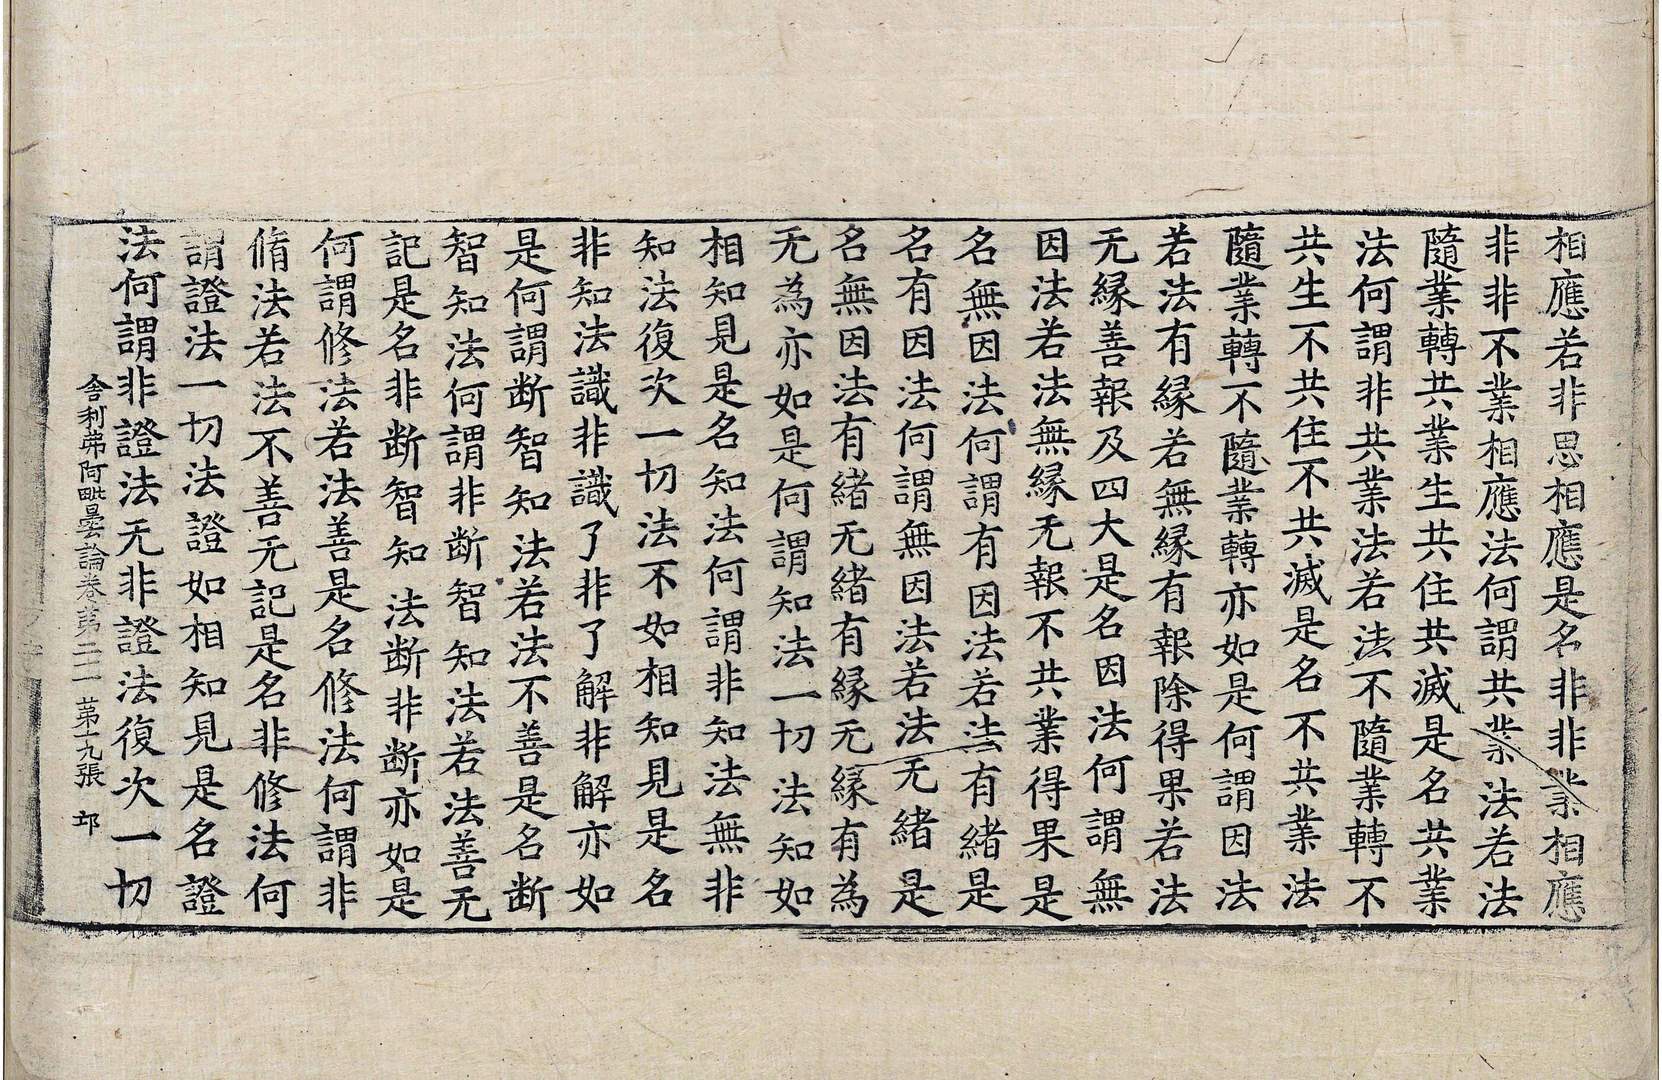 相應若非思相應是名非非業相應
非非不業相應法何謂共業法若法
隨業轉共業生共住共滅是名共業
法何謂非共業法若法不隨業轉不
共生不共住不共滅是名不共業法
隨業轉不隨業轉亦如是何謂因法
若法有緣若無緣有報除得果若法
无緣善報及四大是名因法何謂無
因法若法無緣无報不共業得果是
名無因法何謂有因法若法有緒是
名有因法何謂無因法若法无緒是
名無因法有緒无緒有緣无緣有為
无為亦如是何謂知法一切法知如
相知見是名知法何謂非知法無非
知法復次一切法不如相知見是名
非知法識非識了非了解非解亦如
是何謂断智知法若法不善是名断
智知法何謂非断智知法若法善无
記是名非断智知法断非断亦如是
何謂修法若法善是名修法何謂非
脩法若法不善无記是名非修法何
謂證法一切法證如相知見是名證
法何謂非證法无非證法復次一切
舍利弗阿毗曇論卷苐二 苐十九張